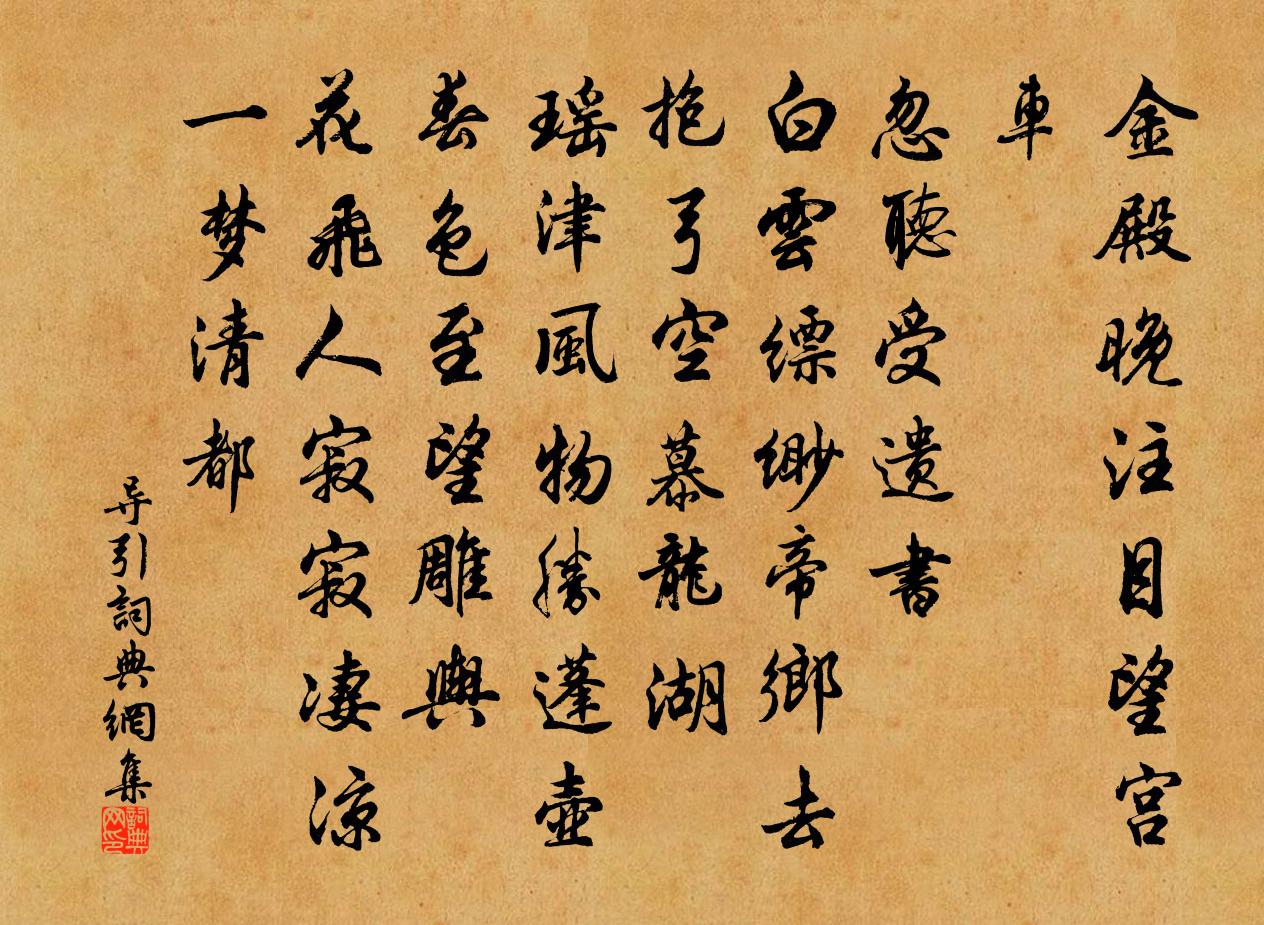 金殿晚注目望宫
車
忽聽受遗書
白雲缥缈帝鄉去
抱弓空慕龍湖
瑶津風物勝蓬壺
春色至望雕輿
花飛人寂寂凄凉
一梦清都
导引詞典網集
詞典网印